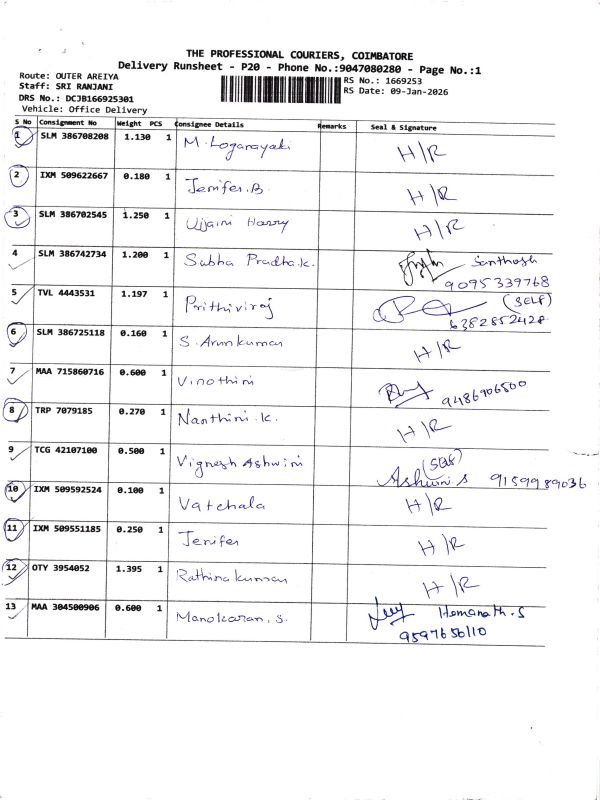 THE PROFESSIONAL COURIERS, COIMBATORE
Delivery Runsheet - P20 - Phone No.:9047080280 - Page No.:1
Route: OUTER AREIYA
Staff: SRI RANJANI
DRS No.: DCJB166925301
Vehicle: Office Delivery
RS No.: 1669253
RS Date: 09-Jan-2026
S No Consignment No Weight PCS Consignee Details Remarks Seal & Signature
1 SLM 386708208 1.130 1 M. Logarayaki H/R
2 IXM 509622667 0.180 1 Jenifer.B. H/R
3 SLM 386702545 1.250 1 Ujjaini Harry H/R
4 SLM 386742734 1.200 1 Subha Pradha.K. Santhosh
9095339768
5 TVL 4443531 1.197 1 Prithiviraj (SELF)
6382852428
6 SLM 386725118 0.160 1 S. Arunkumar H/R
7 MAA 715860716 0.600 1 Vinothini 9486906500
8 TRP 7079185 0.270 1 Nanthini.K. H/R
9 TCG 42107100 0.500 1 Vignesh Ashwini (SELF)
Ashwini S 9159989036
10 IXM 509592524 0.100 1 Vatchala H/R
11 IXM 509551185 0.250 1 Jenifer H/R
12 OTY 3954052 1.395 1 Rathinakumar H/R
13 MAA 304500906 0.600 1 Manokaran.S. Hemanath.S
9597656110